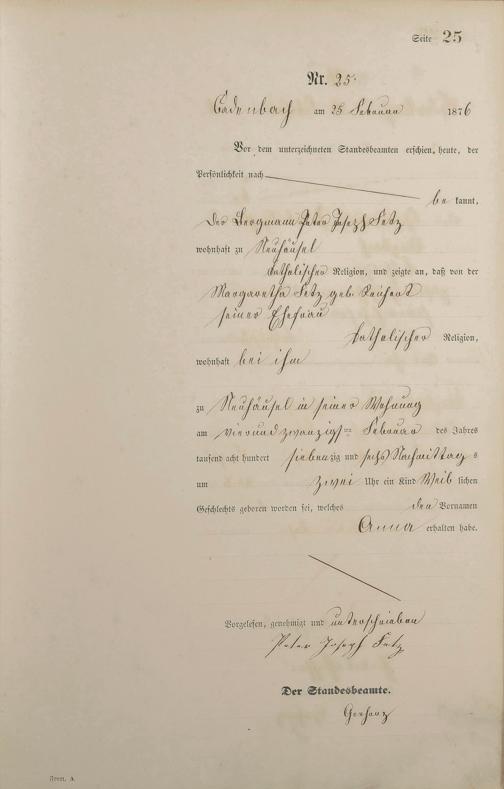 Seite 25
Nr. 25.
Cadenbach am 25 Februar 1876
Vor dem unterzeichneten Standesbeamten erschien, heute, der
Persönlichkeit nach
be kannt,
der Bergmann Peter Joseph Fetz
wohnhaft zu Neuhäusel
katholischer Religion, und zeigte an, daß von der
Margaretha Fetz geb.
seiner Ehefrau
katholischer Religion,
wohnhaft bei ihm
zu Neuhäusel in seiner Wohnung
am vierundzwanzigsten Februar des Jahres
tausend acht hundert siebenzig und sechs Nachmittag s
um zwei Uhr ein Kind Weib lichen
Geschlechts geboren worden sei, welches den Vornamen
Anna erhalten habe.
Vorgelesen, genehmigt und unterschrieben
Peter Joseph Fetz
Der Standesbeamte.
Form. A.